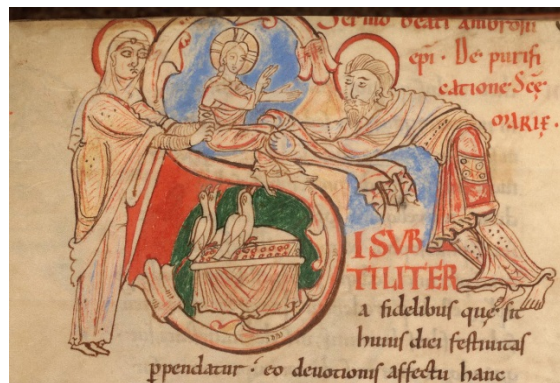 Sermo beati ambrosii
ep̄i · De purifi
catione Scę
MARIĘ ·
SI SVB
TILITER
a fidelibus quę sit
huius diei festiuitas
ꝑpendatur : eo deuotionis affectu hanc